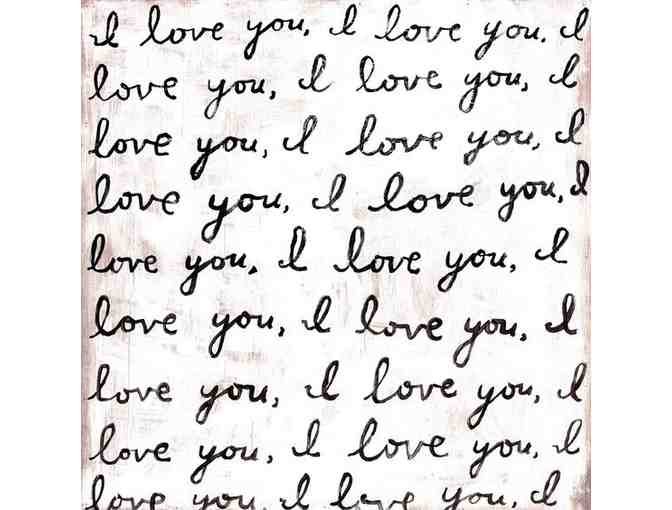 I love you, I love you. I
love you, I love you, I
love you, I love you, I
love you, I love you, I
love you. I love you, I
love you, I love you, I
love you, I love you, I
love you, I love you, I
love you, I love you, I